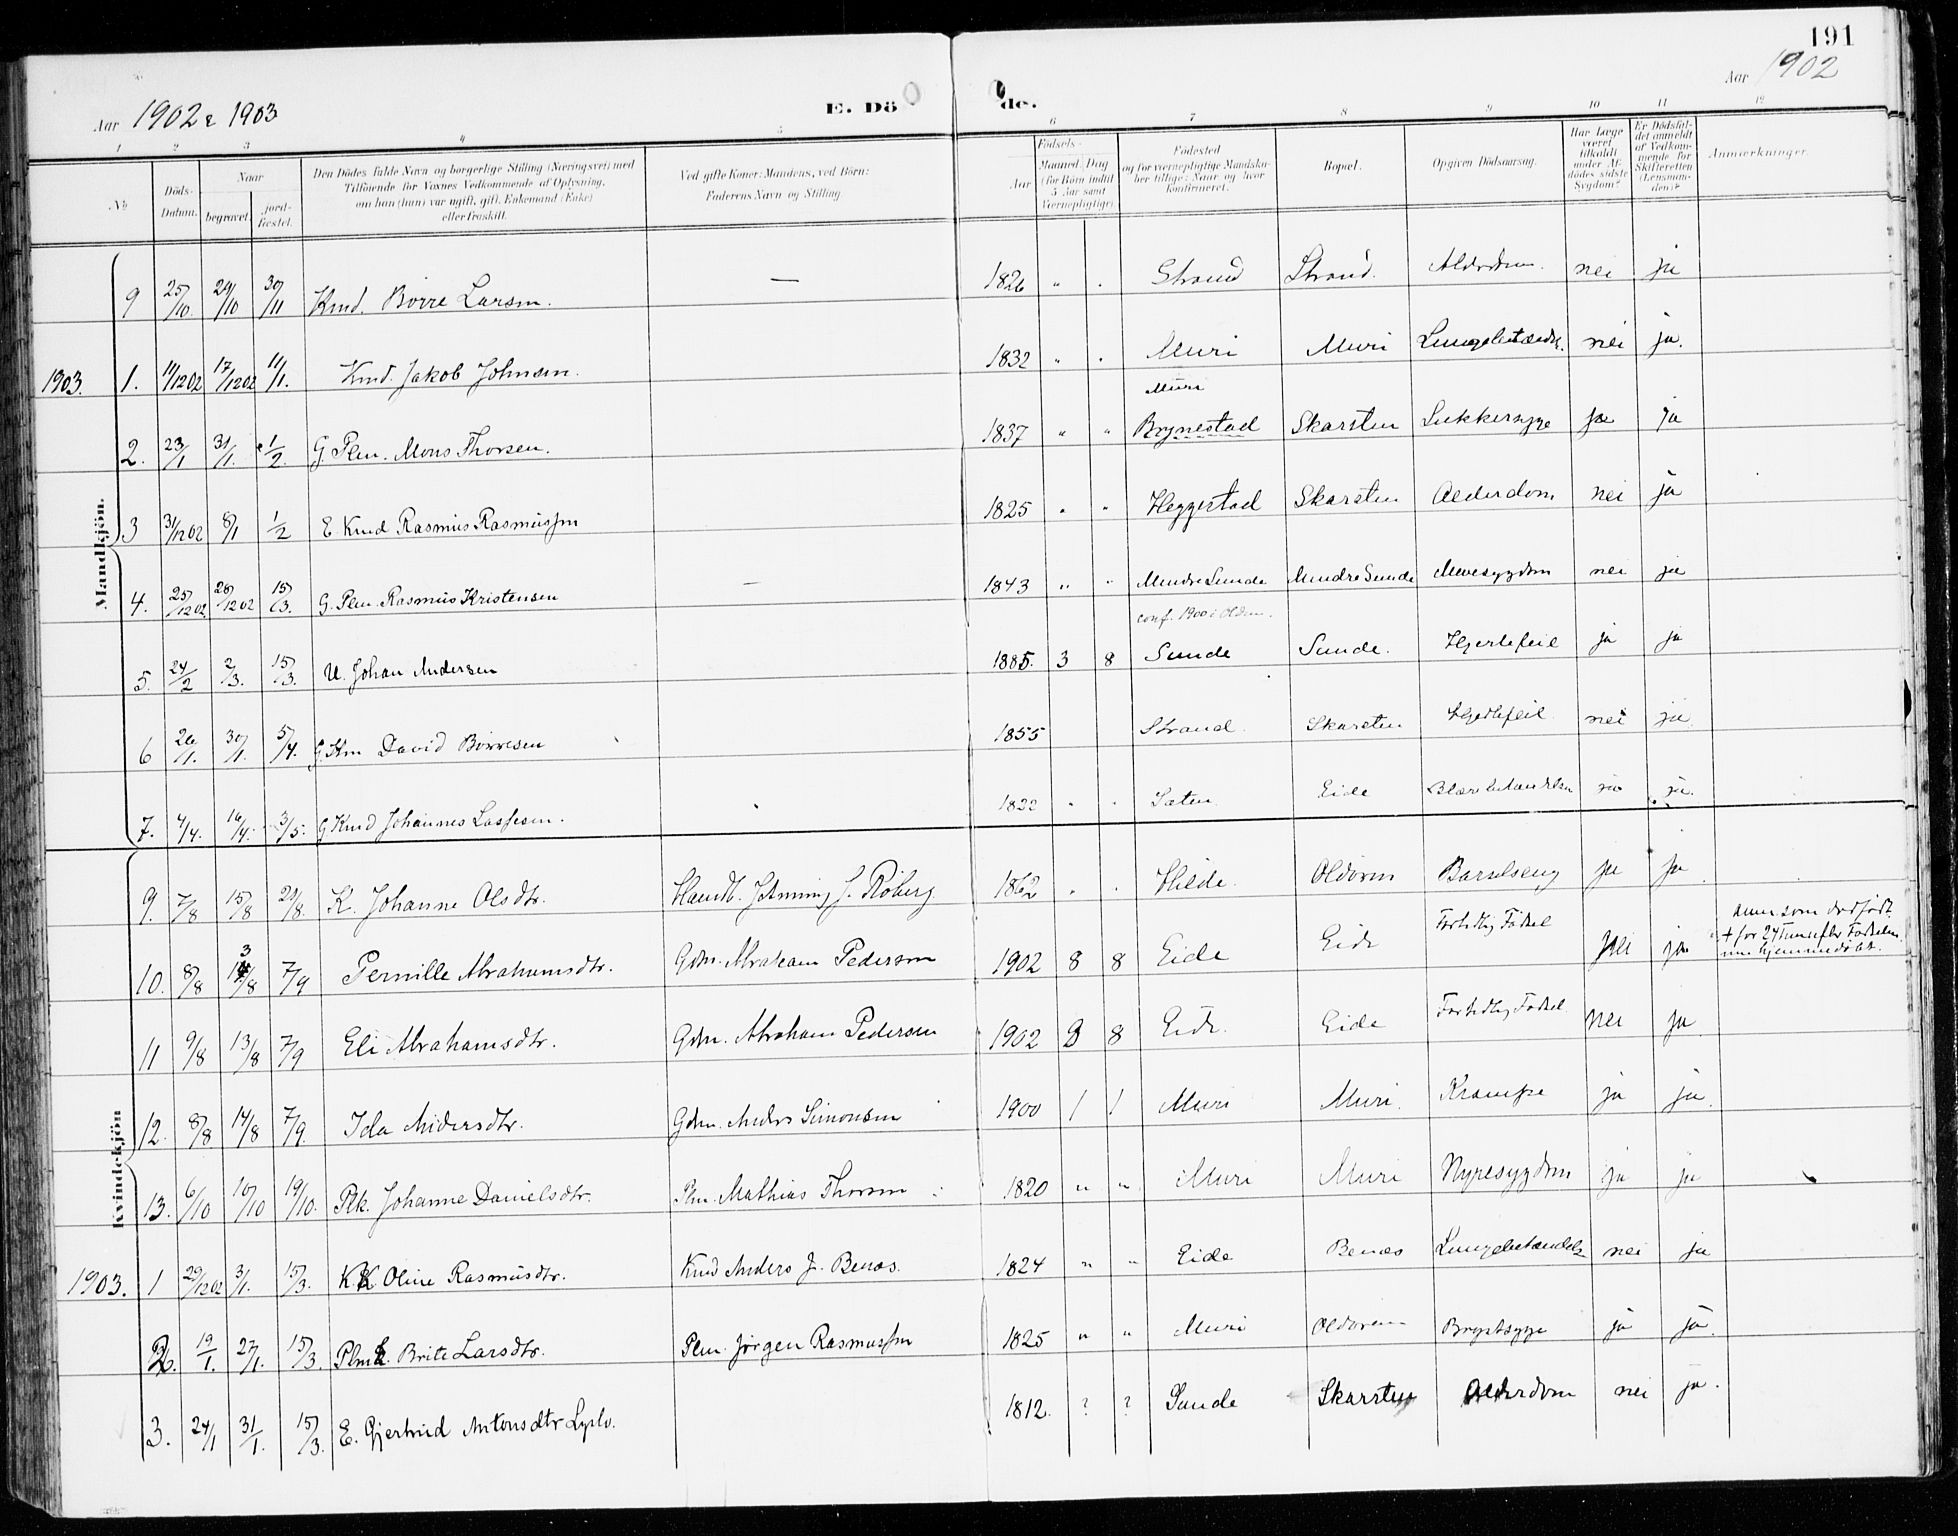 191
Aar 1902 & 1903
E. Dö de.
Aar 1902
1 2 3 4 5 6 7 8 9 10 11 12
No
Döds-Datum.
Naar
begravet
jord-fæstet.
Den Dödes fulde Navn og borgerlige Stilling (Næringsvei) med
Tilföiende for Voxnes Vedkommende af Oplysning,
om han (hun) var ugift, gift, Enkemand (Enke)
eller fraskilt.
Ved gifte Koner: Mandens, ved Börn:
Faderens Navn og Stilling.
Födsels-
Aar
Maaned. Dag
(for Börn indtil
5 Aar samt
Værnepligtige).
Födested
og for værnepligtige Mandska-
ber tillige: Naar og hvor
konfirmeret.
Bopæl.
Opgiven Dödsaarsag.
Har Læge
været
tilkaldt
under Af-
dödes sidste
Sygdom?
Er Dödsfal-
det anmeldt
af Vedkom-
mende for
Skifteretten
(Lensman-
den)?
Anmærkninger.
Mandkjön.
9 25/10 29/10 30/11 Kmd. Börre Larsen. — 1826 " . Strand Strand. Alderdom. nei ja
1903. 1. 11/12 02 17/12 02 11/1. Kmd. Jakob Johnsen. 1832 " . Muri Muri Lungebetændels. nei ja.
Muri
2. 23/1 31/1. 1/2. G. Plm. Mons Thorsen. 1837 " " Brynestad Skarsten Sukkersyge ja ja
3 31/12 02 8/1 1/2 E. Kmd Rasmus Rasmussen 1825 " " Heggestad Skarsten Alderdom nei ja
4. 25/12 02. 28/12 02 15/3. G. Plm. Rasmus Kristensen — 1843 " " Mindre Sunde Mindre Sunde Mavesygdom nei ja
conf. 1900 i Olden.
5. 24/2 2/3. 15/3. U. Johan Andersen 1885. 3 8 Sunde Sunde. Hjertefeil ja ja
6 26/1. 30/1. 5/4. G Km David Börresen 1855 Strand. Skarsten Hjertefeil. nei ja
7. 4/4. 16/4. 3/5. G Kmd Johannes Lassesen. 1822 " " Sæten Eide ja ja.
Kvindekjön
9. 7/8 15/8 21/8. K. Johanne Olsdtr. 1862 " . Hilde. Oldören Barselseng ja ja
10. 8/8 13/8 7/9 Pernille Abrahamsdtr. Gdm. Abraham Pedersen 1902 8 8 Eide Eide Fortidlig Födsel nei ja
11 9/8 13/8 7/9 Eli Abrahamsdtr. Gdm. Abraham Pedersen 1902 8 8 Eide. Eide Fortidlig Födsel nei ja
12. 8/8 14/8 7/9. Ida Andersdtr. Gdm. Anders Simonsen 1900 1 1 Muri Muri. Krampe ja ja.
13. 6/10 10/10 19/10. Plk. Johanne Danielsdtr. Plm. Mathias Thorsen 1820 " " Muri Muri Nyresygdom ja ja
1903. 1 29/12 02 3/1. 15/3. K.K Oline Rasmusdtr. Kmd Anders J. Benæs. 1824 " " Eide Benæs Lungebetændels nei ja
2. 19/1. 27/1. 15/3. Brite Larsdtr. Plm. Jörgen Rasmussen 1825 " " Muri Oldören Brystsyge ja ja.
3. 24/1 31/1. 15/3. E. Gjertrud Antonsdtr 1812. ? ? Sunde Skarsten Alderdom nei ja.